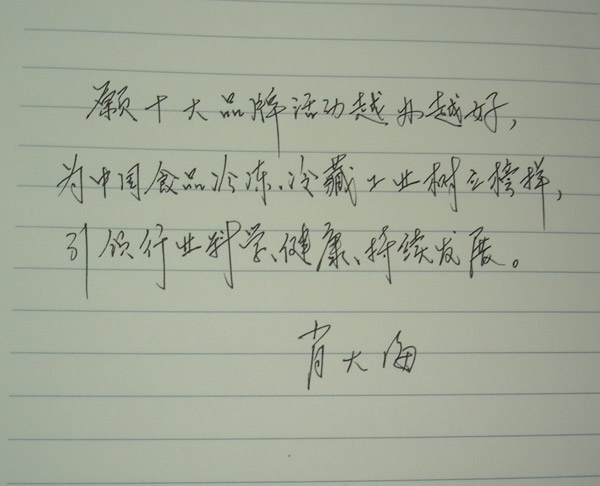 愿十大品牌活动越办越好，
为中国食品冷冻、冷藏工业树立榜样，
引领行业科学、健康、持续发展。
肖大海